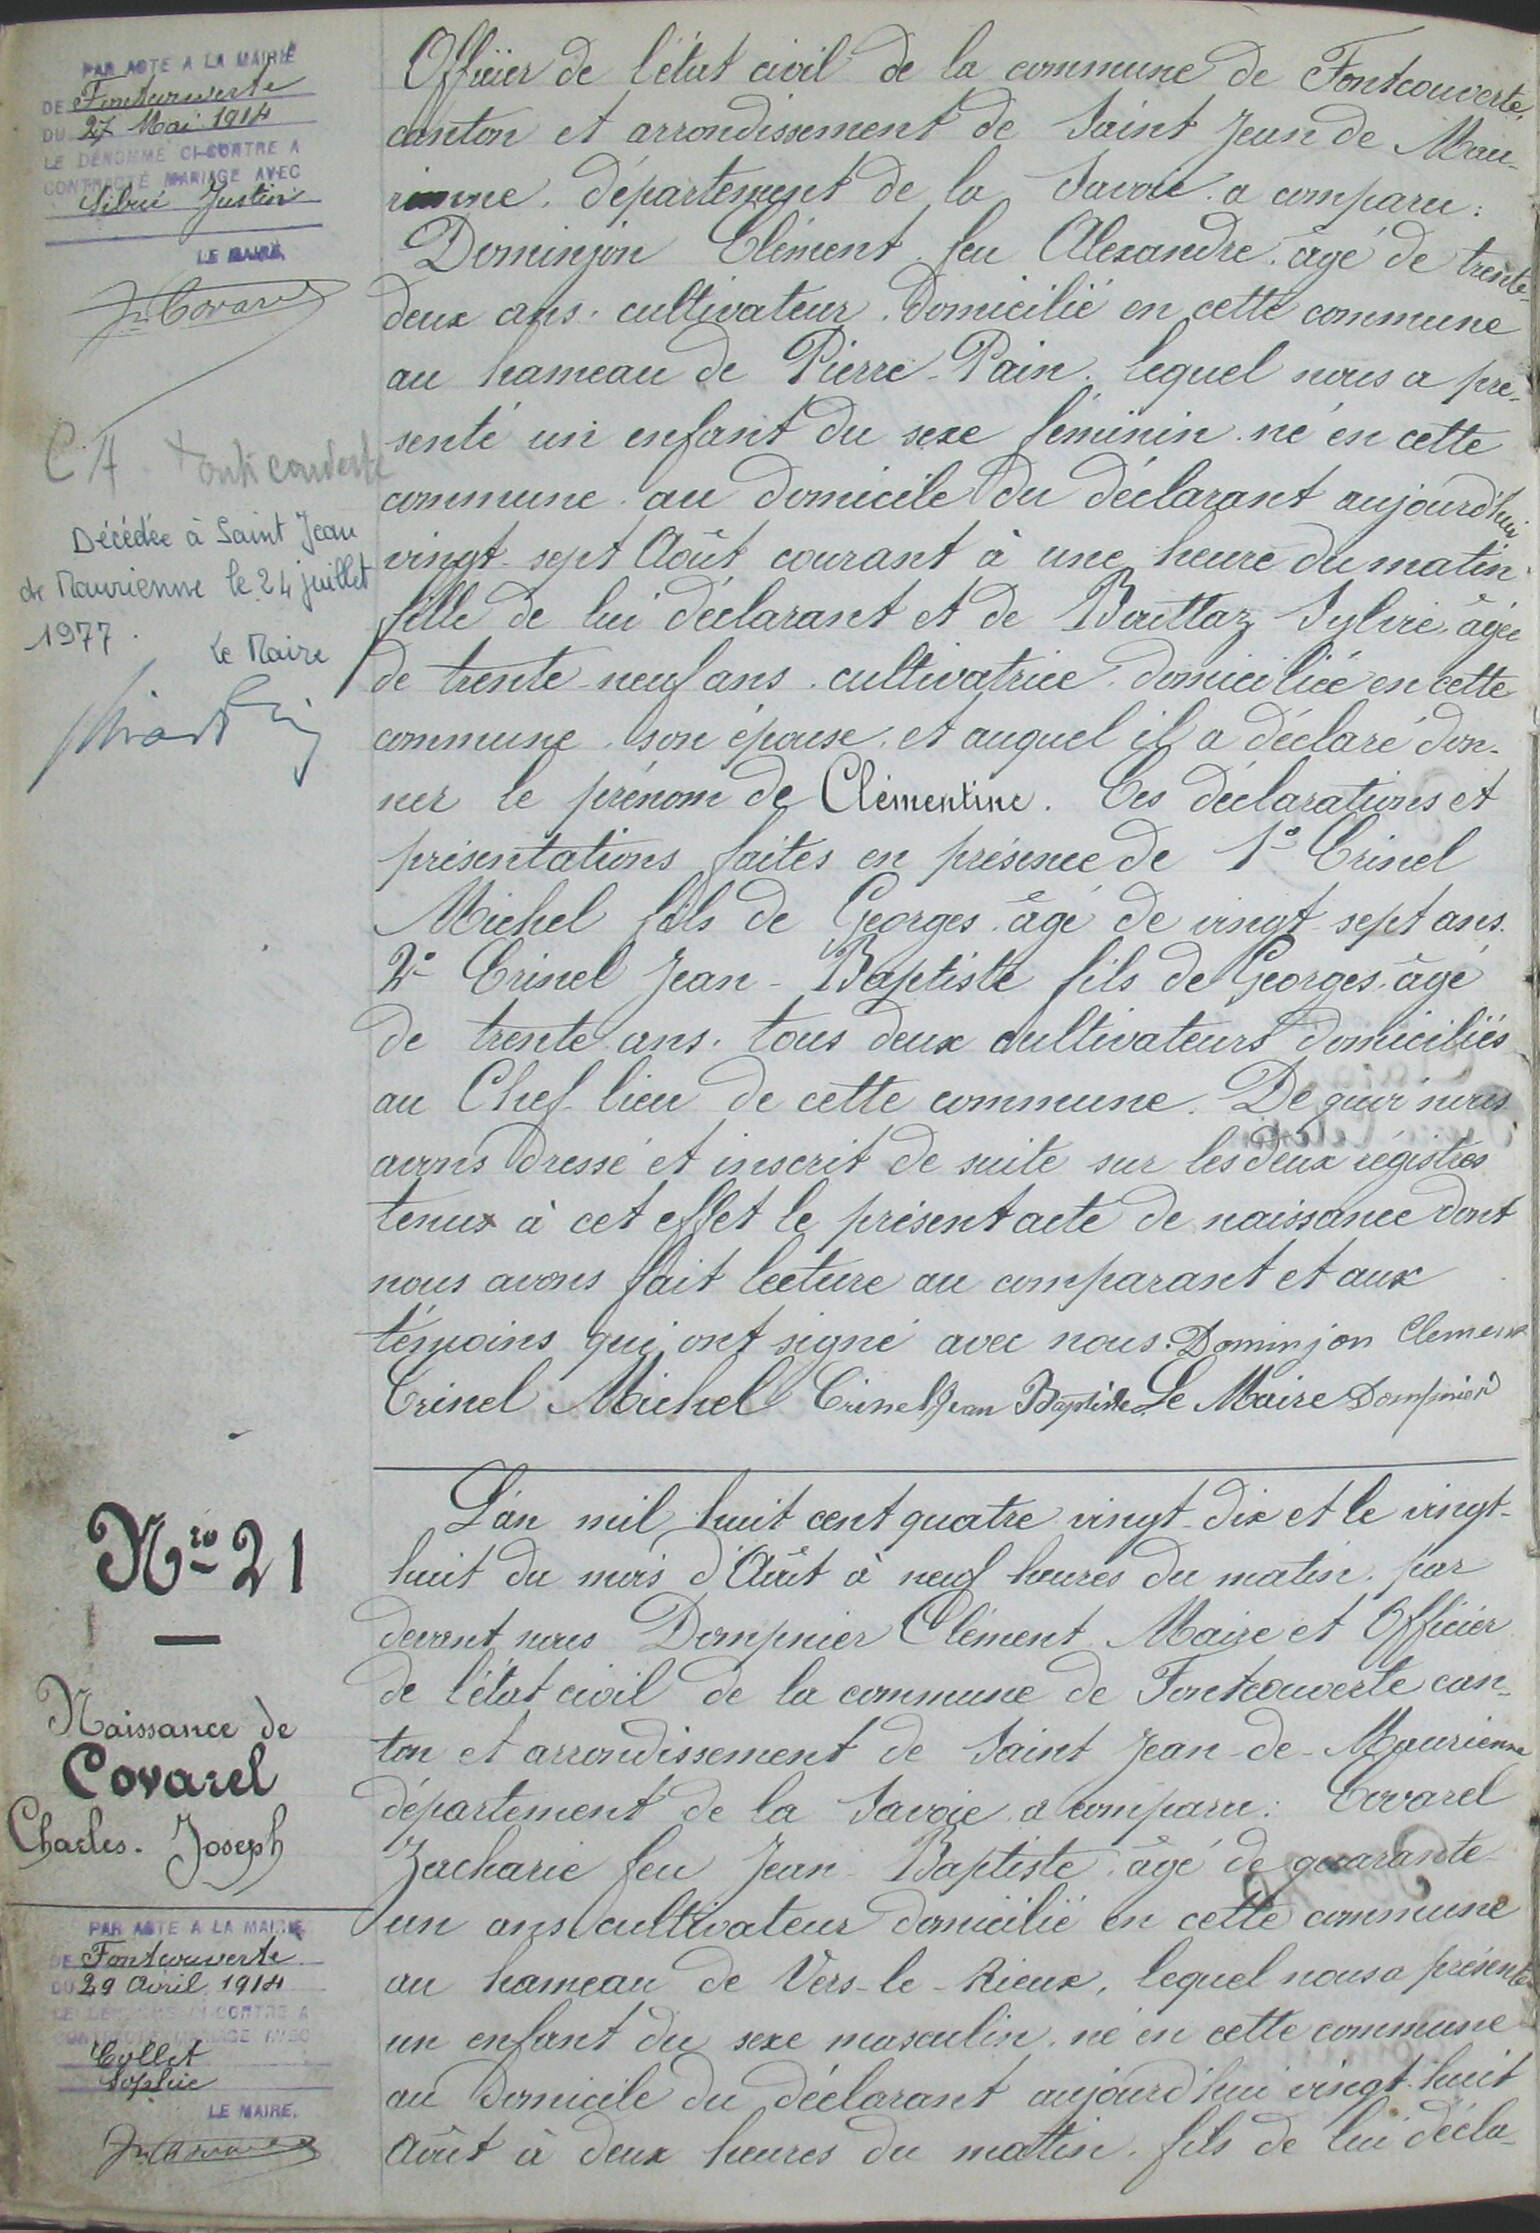 PAR ACTE A LA MAIRIE
DE Fontcouverte
DU 27 Mai 1914
LE DÉNOMMÉ CI-CONTRE A
CONTRACTÉ MARIAGE AVEC
Sibué Justin
LE MAIRE,
Covarel
C A Fontcouverte
Décédée à Saint Jean
de Maurienne le 24 juillet
1977.
Le Maire
Officier de l'état civil de la commune de Fontcouverte,
canton et arrondissement de Saint Jean de Mau-
rienne. département de la Savoie. a comparu:
Dominjon Clément feu Alexandre. âgé de trente-
deux ans. cultivateur. domicilié en cette commune
au hameau de Pierre-Pain. lequel nous a pré-
senté un enfant du sexe féminin. né en cette
commune. au domicile du déclarant aujourd'hui
vingt-sept Août courant à une heure du matin.
fille de lui déclarant et de Bouttaz Sylvie. âgée
de trente-neuf ans. cultivatrice. domiciliée en cette
commune. son épouse. et auquel il a déclaré don-
ner le prénom de Clémentine. Ces déclarations et
présentations faites en présence de 1° Crinel
Michel fils de Georges. âgé de vingt-sept ans.
2° Crinel Jean-Baptiste fils de Georges. âgé
de trente ans. tous deux cultivateurs domiciliés
au Chef-lieu de cette commune. De quoi nous
avons dressé et inscrit de suite sur les deux régistres
tenux à cet effet le présent acte de naissance dont
nous avons fait lecture au comparant et aux
témoins qui ont signé avec nous. Dominjon Clement
Crinel Michel Crinel Jean Baptiste Le Maire Dompnier
Nro 21
Naissance de
Covarel
Charles-Joseph
PAR ACTE A LA MAIRIE
DE Fontcouverte
DU 29 Avril 1914
LE DÉNOMMÉ CI-CONTRE A
CONTRACTÉ MARIAGE AVEC
Collet
Sophie
LE MAIRE,
Covarel
L'an mil huit cent quatre vingt-dix et le vingt-
huit du mois d'Août à neuf heures du matin. par
devant nous Dompnier Clément Maire et Officier
de l'état civil de la commune de Fontcouverte can-
ton et arrondissement de Saint Jean-de-Maurienne
département de la Savoie. a comparu: Covarel
Zacharie feu Jean-Baptiste. âgé de quarante-
un ans cultivateur domicilié en cette commune
au hameau de Vers-le-Rieux, lequel nous a présenté
un enfant du sexe masculin. né en cette commune
au domicile du déclarant aujourd'hui vingt-huit
Août à deux heures du matin. fils de lui décla-